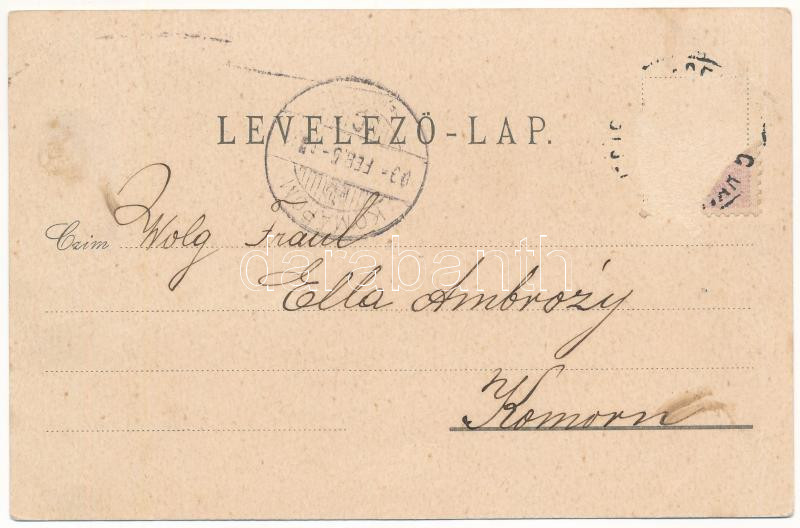 LEVELEZŐ-LAP.
KOMÁROM
03 FEB. 5
Czim Wolg Fraul
Ella Ambrozy
Komorn
darabanth